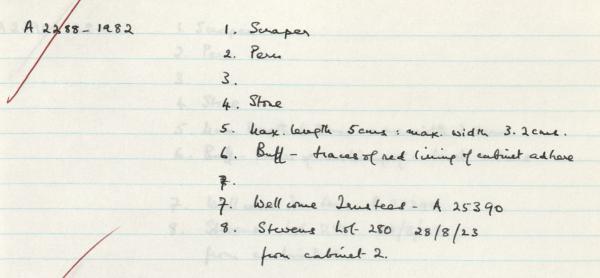 A 2288-1982 1. Scraper
2. Peru
3.
4. Stone
5. Max. length 5cms : max. width 3.2cms.
6. Buff - traces of red lining of cabinet adhere
7.
7. Wellcome Trustees - A 25390
8. Stevens Lot 280 28/8/23
from cabinet 2.